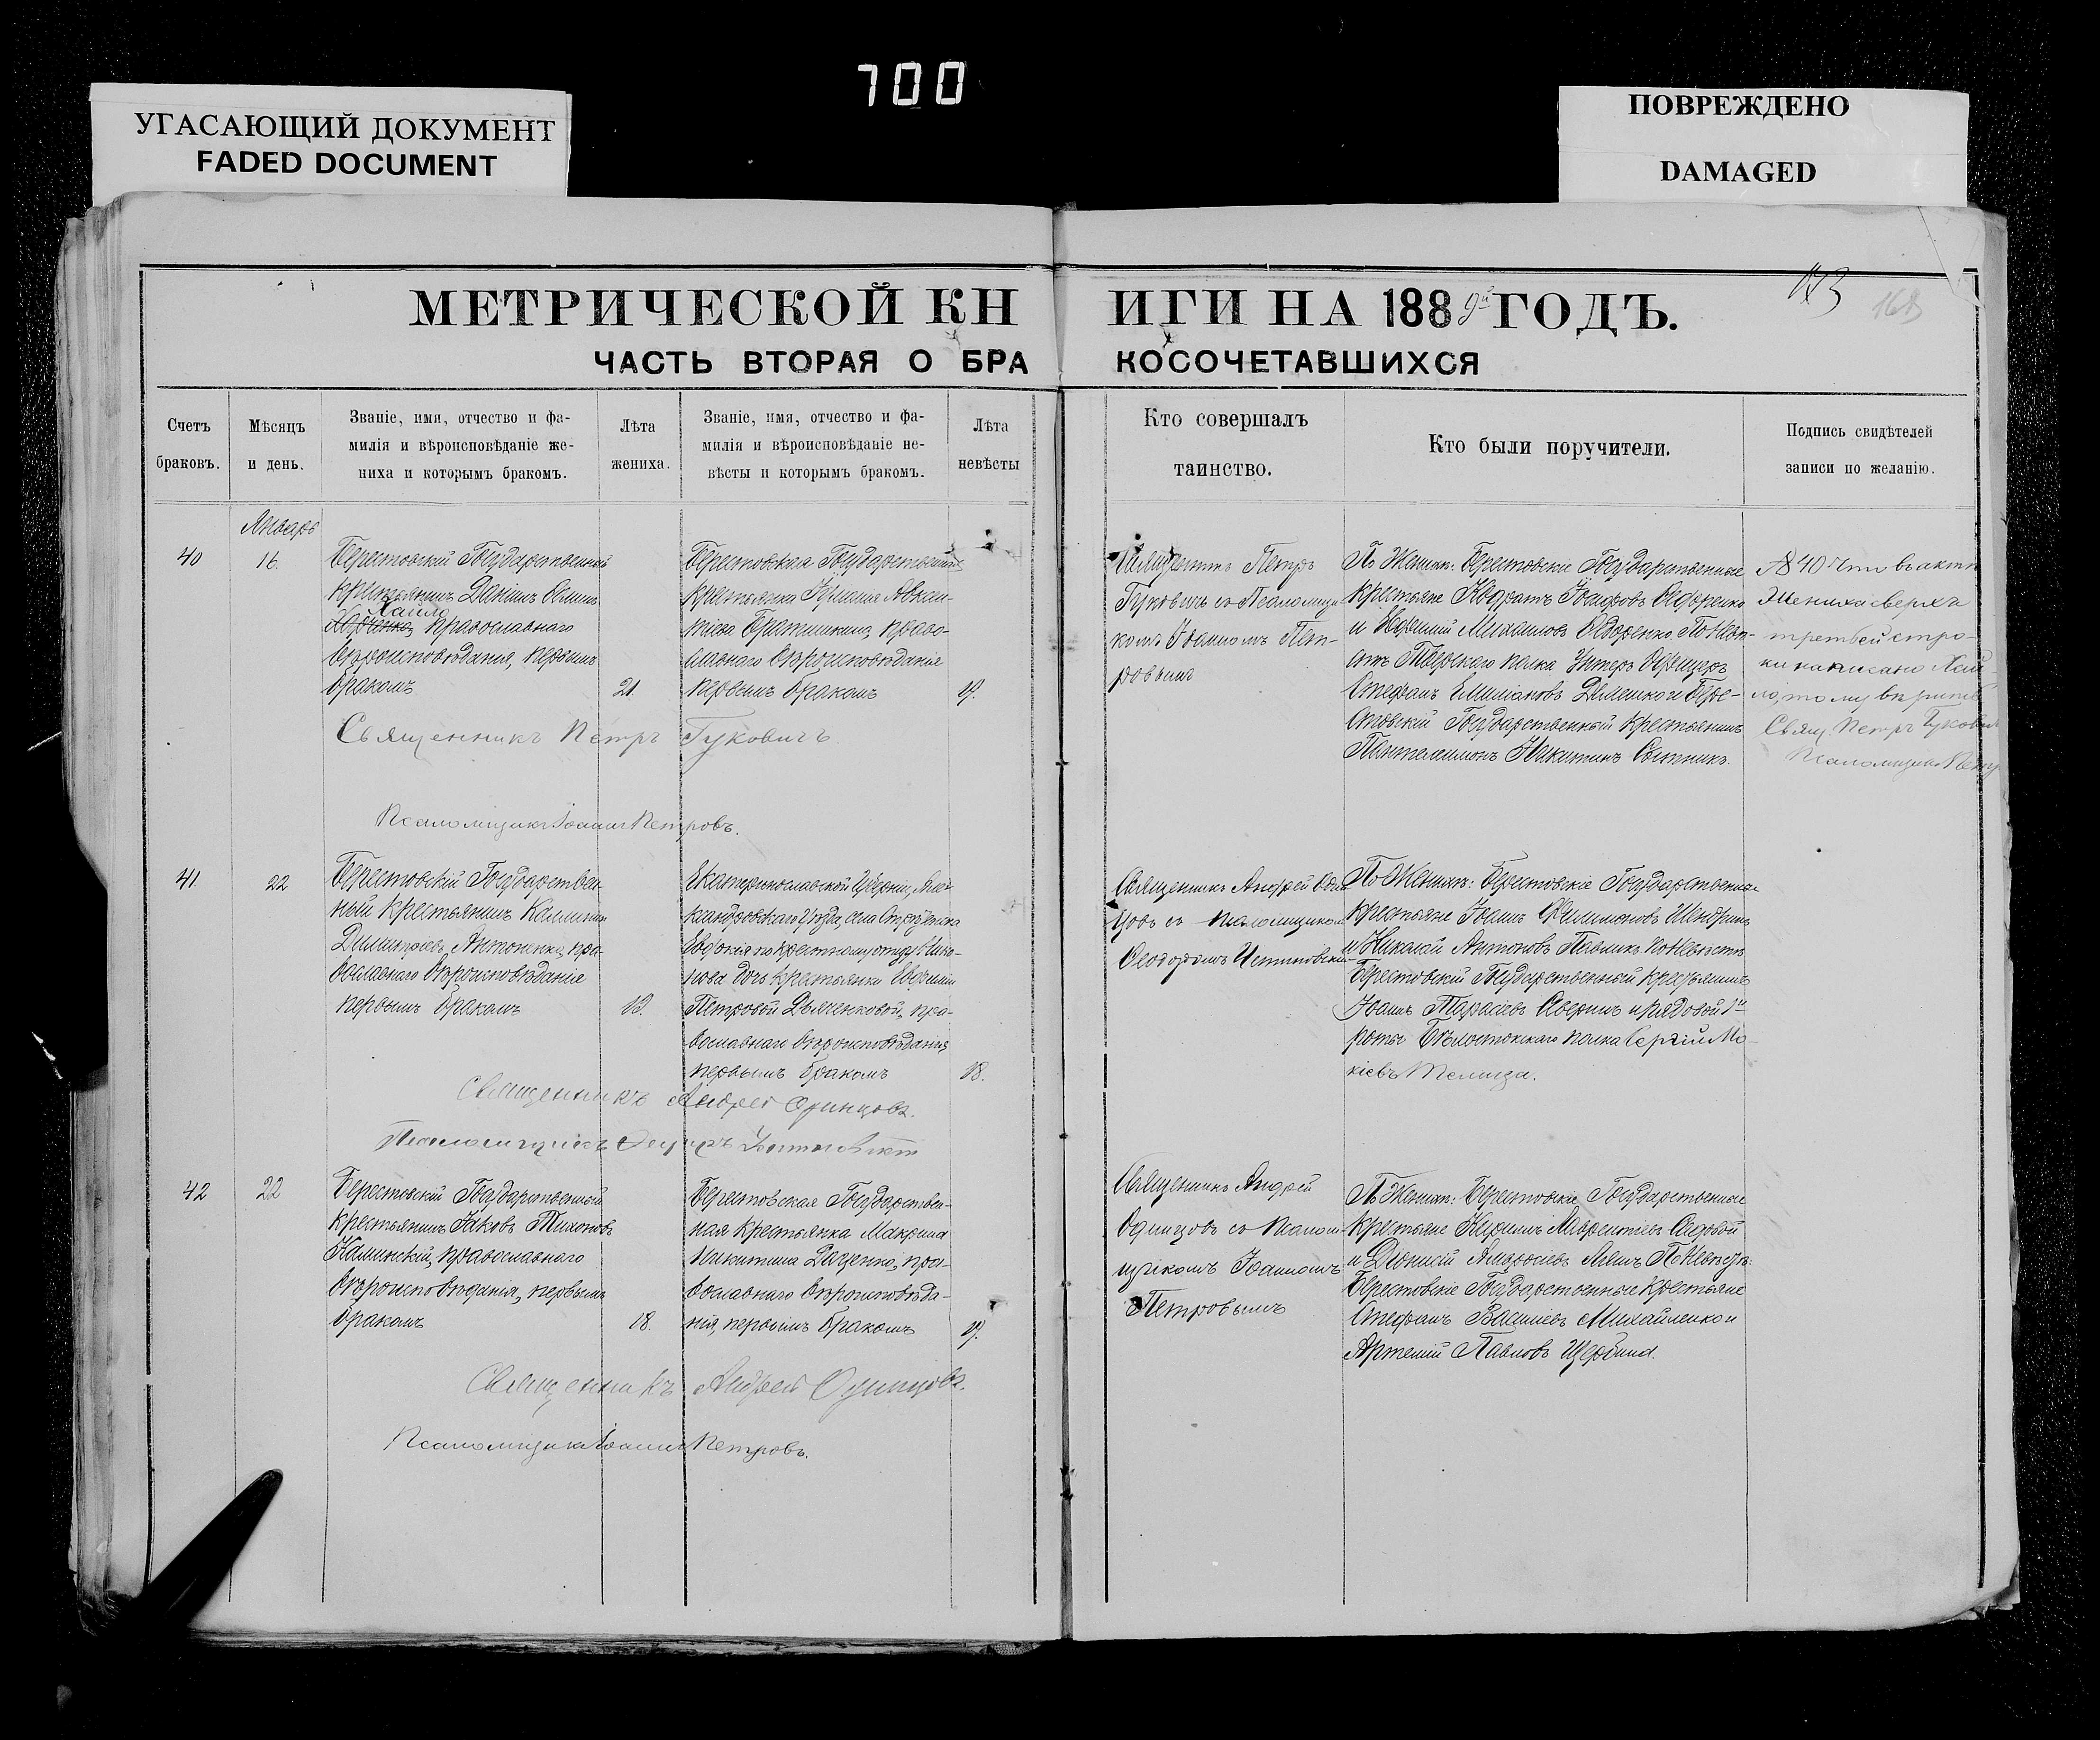 700
УГАСАЮЩИЙ ДОКУМЕНТ
FADED DOCUMENT
ПОВРЕЖДЕНО
DAMAGED
МЕТРИЧЕСКОЙ КНИГИ НА 1889й ГОДЪ.
ЧАСТЬ ВТОРАЯ О БРАКОСОЧЕТАВШИХСЯ
Счетъ
браковъ.
Мѣсяцъ
и день.
Званіе, имя, отчество и фа-
милія и вѣроисповѣданіе же-
ниха и которымъ бракомъ.
Лѣта
жениха.
Званіе, имя, отчество и фа-
милія и вѣроисповѣданіе не-
вѣсты и которымъ бракомъ.
Лѣта
невѣсты
Кто совершалъ
таинство.
Кто были поручители.
Подпись свидѣтелей
записи по желанію.
Январь
40
16.
Берестовскій Государственный
крестьянинъ Даніилъ
Хайло
православнаго
вѣроисповѣданія, первымъ
бракомъ
21.
Берестовская Государственная
крестьянка
Братишкина, право-
славнаго вѣроисповѣданіе
первымъ бракомъ
19.
Священникъ Петръ
Гуковичъ съ Псаломщи-
комъ Іоанномъ Пет-
ровымъ
По Женихѣ: Берестовскіе Государственные
крестьяне Кодратъ Іосифовъ Сидоренко
и Михаиловъ Сидоренко По Невѣ-
стѣ Тверскаго полка Унтеръ Офицеръ
Стефанъ Емиліановъ и Бере-
стовскій Государственный крестьянинъ
Пантелеимонъ Никитинъ Сытникъ.
№ 40 Что въ актѣ
Жениха сверхъ
третьей стро-
ки написано Хай
ло, тому вѣрить
Свящ. Петръ Гуковичъ
Псаломщикъ
Священникъ Петръ Гуковичъ
Псаломщикъ Іоаннъ Петровъ.
41.
22
Берестовскій Государствен-
ный крестьянинъ Каллиникъ
Димитріевъ Антоненко, пра-
вославнаго вѣроисповѣданіе
первымъ бракомъ
18.
Екатеринославской Губерніи, Алек-
сандровскаго Уѣзда, села
Евдокія по крестному отцу Нико-
лова дочь крестьянки Евфиміи
Петровой Дьяченковой, пра-
вославнаго вѣроисповѣданія,
первымъ бракомъ
18.
Священникъ Андрей Один-
цовъ съ псаломщикомъ
Ѳеодоромъ
По Женихѣ: Берестовскіе Государственные
крестьяне Іоаннъ Филимоновъ
и Николай Антоновъ Павликъ По Невѣстѣ
Берестовскій Государственный крестьянинъ
Іоаннъ Тарасіевъ Аверинъ и рядовой 1й
роты Бѣлостокскаго полка Сергій Мо-
кіевъ Телица.
Священникъ Андрей Одинцовъ.
Псаломщикъ
42
22
Берестовскій Государственный
крестьянинъ Іаковъ Тихоновъ
Калинскій, православнаго
вѣроисповѣданія, первымъ
бракомъ
18.
Берестовская Государствен-
ная крестьянка Макрина
Никитина Даценко, пра-
вославнаго вѣроисповѣда-
нія, первымъ бракомъ
19.
Священникъ Андрей
Одинцовъ съ псалом-
щикомъ Іоанномъ
Петровымъ
По Женихѣ: Берестовскіе Государственные
крестьяне Лаврентіевъ
и Діонисій По Невѣстѣ:
Берестовскіе Государственные крестьяне
Стефанъ Василіевъ Михайленко и
Артемій Павловъ Щербина.
Священникъ Андрей Одинцовъ.
Псаломщикъ Іоаннъ Петровъ.